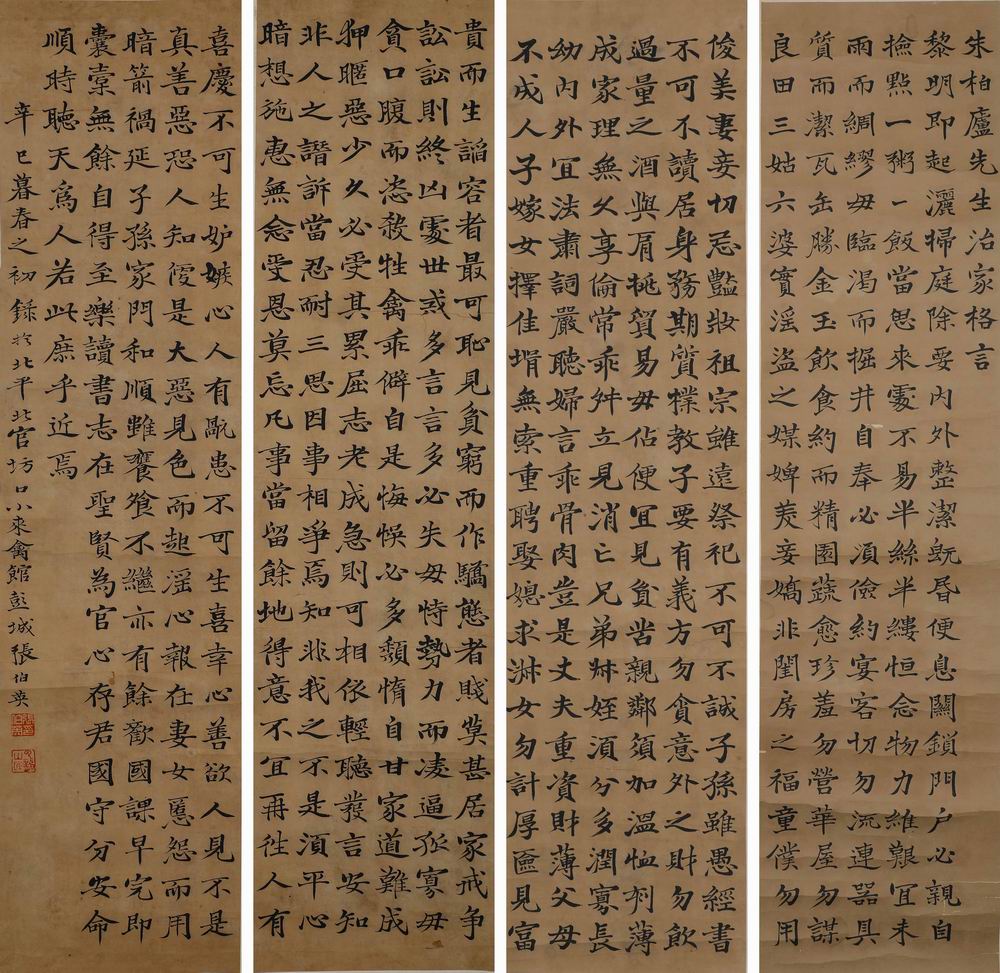 朱柏廬先生治家格言
黎明即起灑掃庭除要內外整潔既昏便息關鎖門户必親自
撿點一粥一飯當思來處不易半絲半縷恒念物力維艱宜未
雨而綢繆毋臨渴而掘井自奉必須儉約宴客切勿流連器具
質而潔瓦缶勝金玉飲食約而精園蔬愈珍羞勿營華屋勿謀
良田三姑六婆實淫盜之媒婢美妾嬌非閨房之福童僕勿用
俊美妻妾切忌豔妝祖宗雖遠祭祀不可不誠子孫雖愚經書
不可不讀居身務期質樸教子要有義方勿貪意外之財勿飲
過量之酒與肩挑貿易毋佔便宜見貧苦親鄰須加溫恤刻薄
成家理無久享倫常乖舛立見消亡兄弟叔姪須分多潤寡長
幼內外宜法肅詞嚴聽婦言乖骨肉豈是丈夫重資財薄父母
不成人子嫁女擇佳壻無索重聘娶媳求淑女勿計厚匳見富
貴而生謟容者最可恥見貧窮而作驕態者賤莫甚居家戒争
訟訟則終凶處世戒多言言多必失毋恃勢力而凌逼孤寡毋
貪口腹而恣殺牲禽乖僻自是悔悞必多頹惰自甘家道難成
狎暱惡少久必受其累屈志老成急則可相依輕聽發言安知
非人之譖訴當忍耐三思因事相爭焉知非我之不是須平心
暗想施惠無念受恩莫忘凡事當留餘地得意不宜再往人有
喜慶不可生妒嫉心人有禍患不可生喜幸心善欲人見不是
真善惡恐人知便是大惡見色而起淫心報在妻女慝怨而用
暗箭禍延子孫家門和順雖饔飧不繼亦有餘歡國課早完即
囊橐無餘自得至樂讀書志在聖賢為官心存君國守分安命
順時聽天為人若此庶乎近焉
辛巳暮春之初錄於北平北官坊口小來禽館彭城張伯英